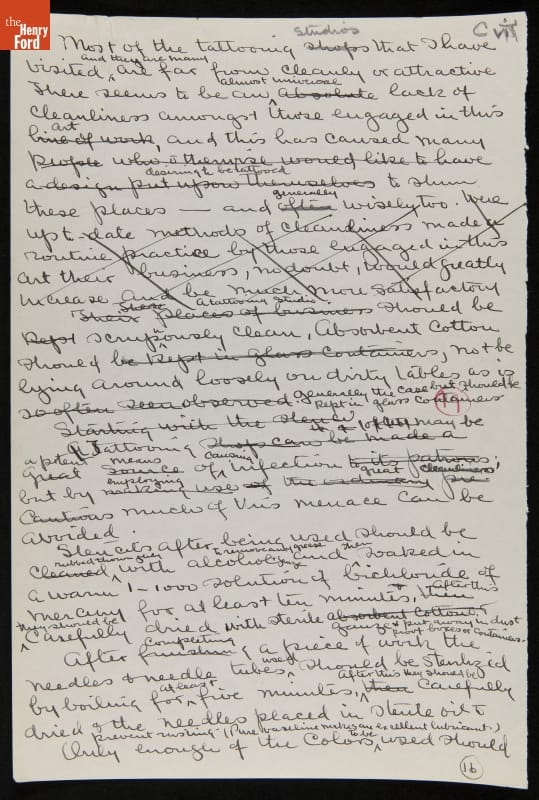 the
Henry
Ford
studios
C VII
Most of the tattooing shops that I have
and they are many
visited, are far from cleanly or attractive
almost universal
There seems to be an absolute lack of
cleanliness amongst those engaged in this
art
line of work, and this has caused many
people who otherwise would like to have
desiring to be tattooed
a design put upon themselves to shun
generally
these places — and often wisely too. Were
up to-date methods of cleanliness made a
routine practice by those engaged in this
art their business, no doubt, would greatly
increase and be much more satisfactory
These A tattooing studio
Their places of business should be
kept scrupulously clean, Absorbent Cotton
should be kept in glass containers, not be
lying around loosely on dirty tables as is
so often seen observed. generally the case but should be
kept in glass containers
17
Starting with the stencil may be
tattooing shops can be made a
a potent means causing
great source of infection to its patrons;
employing great cleanliness,
but by making use of the ordinary pre
cautions much of this menace can be
avoided.
Stencils after being used should be
rubbed then to remove any grease then
cleaned, with alcohol and soaked in
a warm 1-1000 solution of bichloride of
after this
mercury for at least ten minutes, then
they should be
carefully dried with sterile absorbent cotton &
gauze & put away in dust
proof boxes or containers.
completing
After finishing a piece of work the
used
needles & needle tubes should be sterilized
at least After this they should be
by boiling for five minutes, then carefully
dried & the needles placed in sterile oil to
prevent rusting. (Pure vaseline makes an excellent lubricant.)
to be
Only enough of the colors used should
16